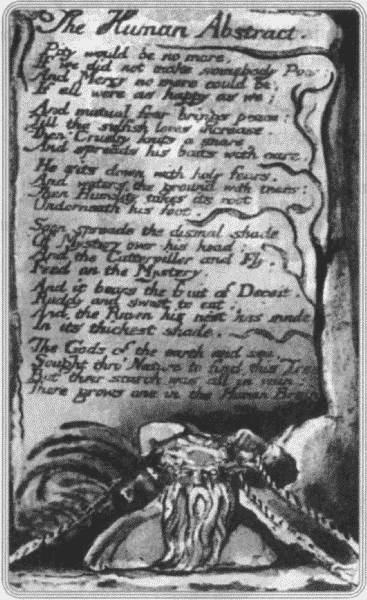 The Human Abstract.
Pity would be no more,
If we did not make somebody Poor:
And Mercy no more could be,
If all were as happy as we;
And mutual fear brings peace:
Till the selfish loves increase.
Then Cruelty knits a snare,
And spreads his baits with care.
He sits down with holy fears,
And waters the ground with tears:
Then Humility takes its root
Underneath his foot.
Soon spreads the dismal shade
Of Mystery over his head;
And the Catterpiller and Fly,
Feed on the Mystery.
And it bears the fruit of Deceit,
Ruddy and sweet to eat;
And the Raven his nest has made
In its thickest shade.
The Gods of the earth and sea,
Sought thro' Nature to find this Tree
But their search was all in vain:
There grows one in the Human Brain